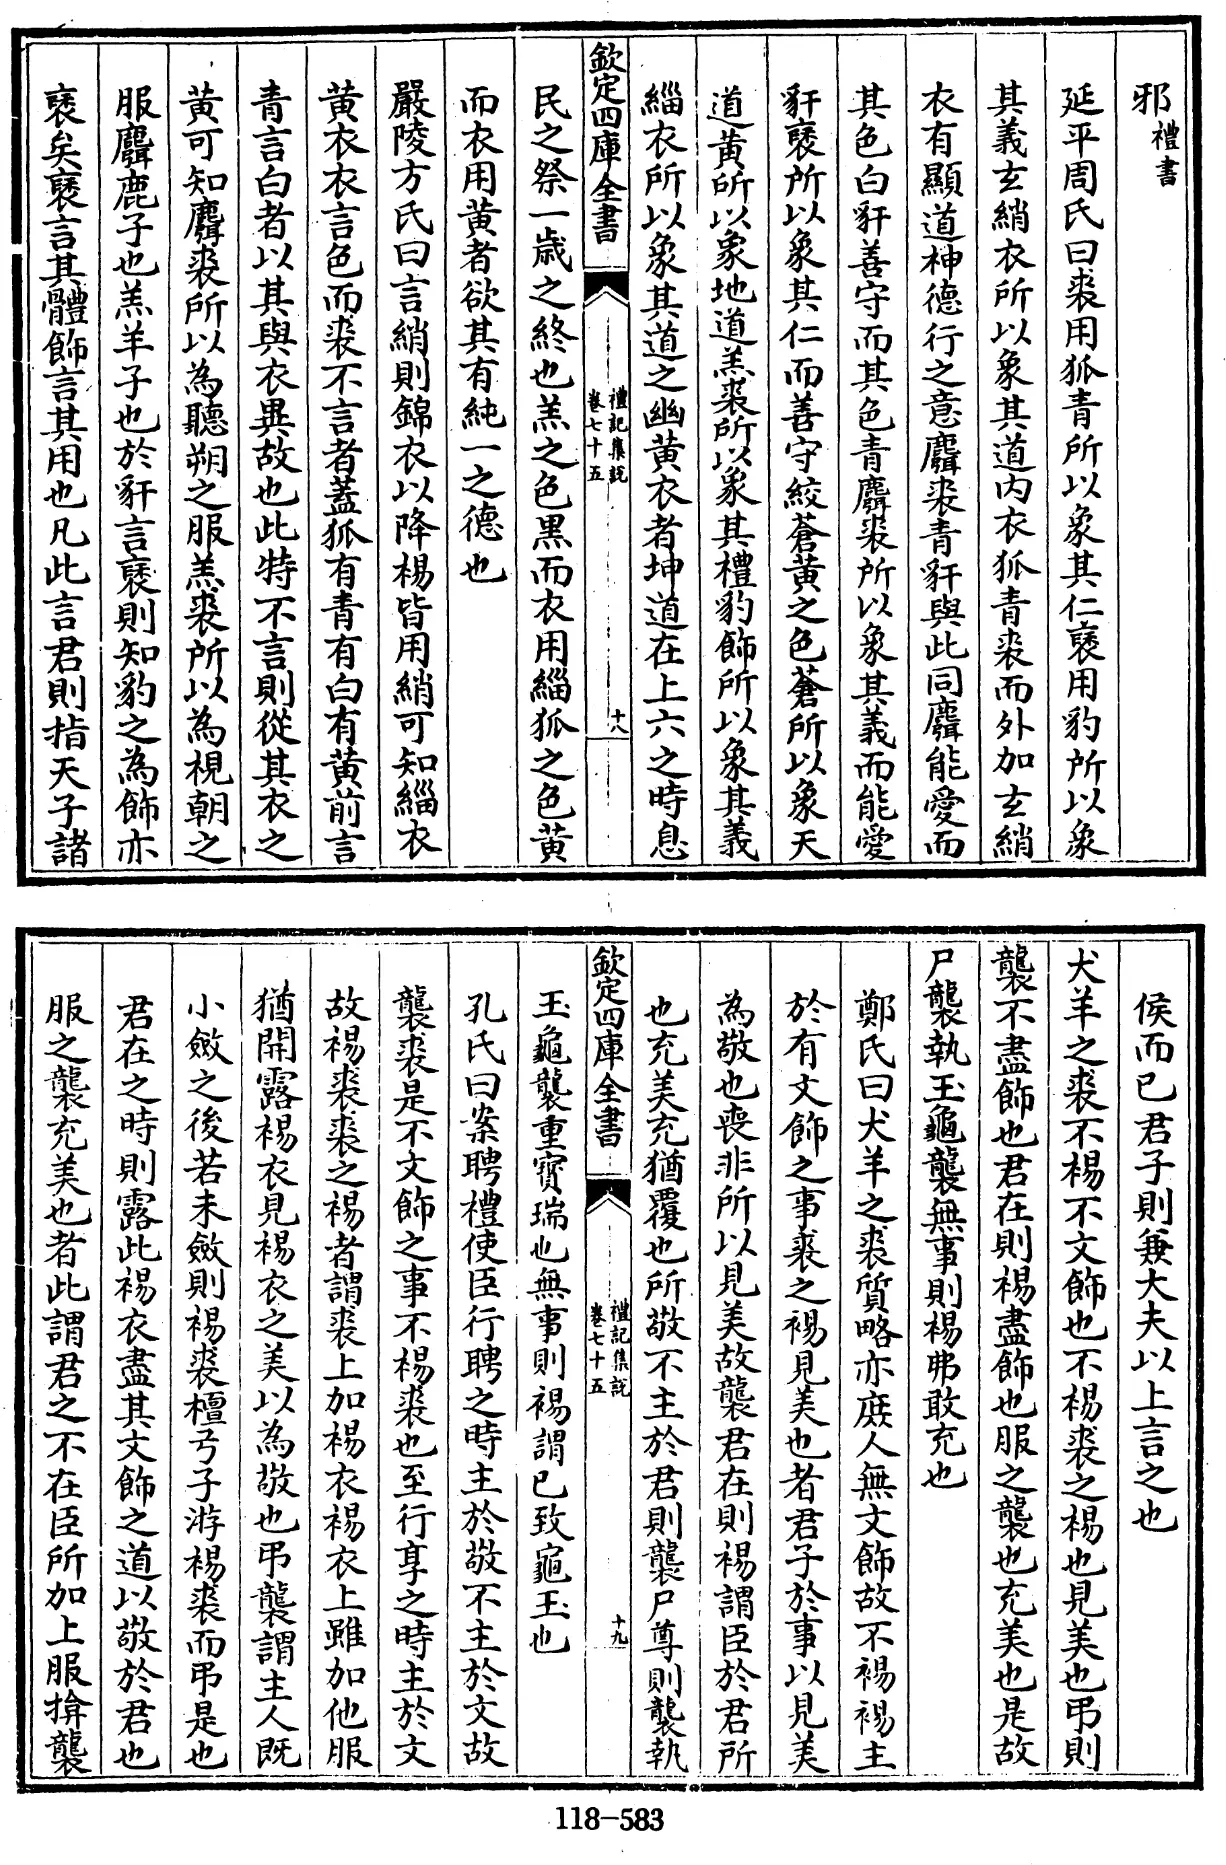 邪禮書
延平周氏曰裘用狐青所以象其仁褎用豹所以象
其義玄綃衣所以象其道内衣狐青裘而外加玄綃
衣有顯道神德行之意麛裘青豻與此同麛能愛而
其色白豻善守而其色青麛裘所以象其義而能愛
豻褎所以象其仁而善守絞蒼黄之色蒼所以象天
道黄所以象地道羔裘所以象其禮豹飾所以象其義
緇衣所以象其道之幽黄衣者坤道在上六之時息
欽定四庫全書
禮記集說
卷七十五
十八
民之祭一歳之終也羔之色黑而衣用緇狐之色黄
而衣用黄者欲其有純一之德也
嚴陵方氏曰言綃則錦衣以降裼皆用綃可知緇衣
黄衣衣言色而裘不言者蓋狐有青有白有黄前言
青言白者以其與衣異故也此特不言則從其衣之
黄可知麛裘所以為聽朔之服羔裘所以為視朝之
服麛鹿子也羔羊子也於豻言褎則知豹之為飾亦
褎矣褎言其體飾言其用也凡此言君則指天子諸
侯而已君子則兼大夫以上言之也
犬羊之裘不裼不文飾也不裼裘之裼也見美也弔則
襲不盡飾也君在則裼盡飾也服之襲也充美也是故
尸襲執玉龜襲無事則裼弗敢充也
鄭氏曰犬羊之裘質略亦庶人無文飾故不裼裼主
於有文飾之事裘之裼見美也者君子於事以見美
為敬也喪非所以見美故襲君在則裼謂臣於君所
也充美充猶覆也所敬不主於君則襲尸尊則襲執
欽定四庫全書
禮記集說
卷七十五
十九
玉龜襲重寳瑞也無事則裼謂已致龜玉也
孔氏曰案聘禮使臣行聘之時主於敬不主於文故
襲裘是不文飾之事不裼裘也至行享之時主於文
故裼裘裘之裼者謂裘上加裼衣裼衣上雖加他服
猶開露裼衣見裼衣之美以為敬也弔襲謂主人既
小斂之後若未斂則裼裘檀弓子游裼裘而弔是也
君在之時則露此裼衣盡其文飾之道以敬於君也
服之襲充美也者此謂君之不在臣所加上服揜襲
118-583